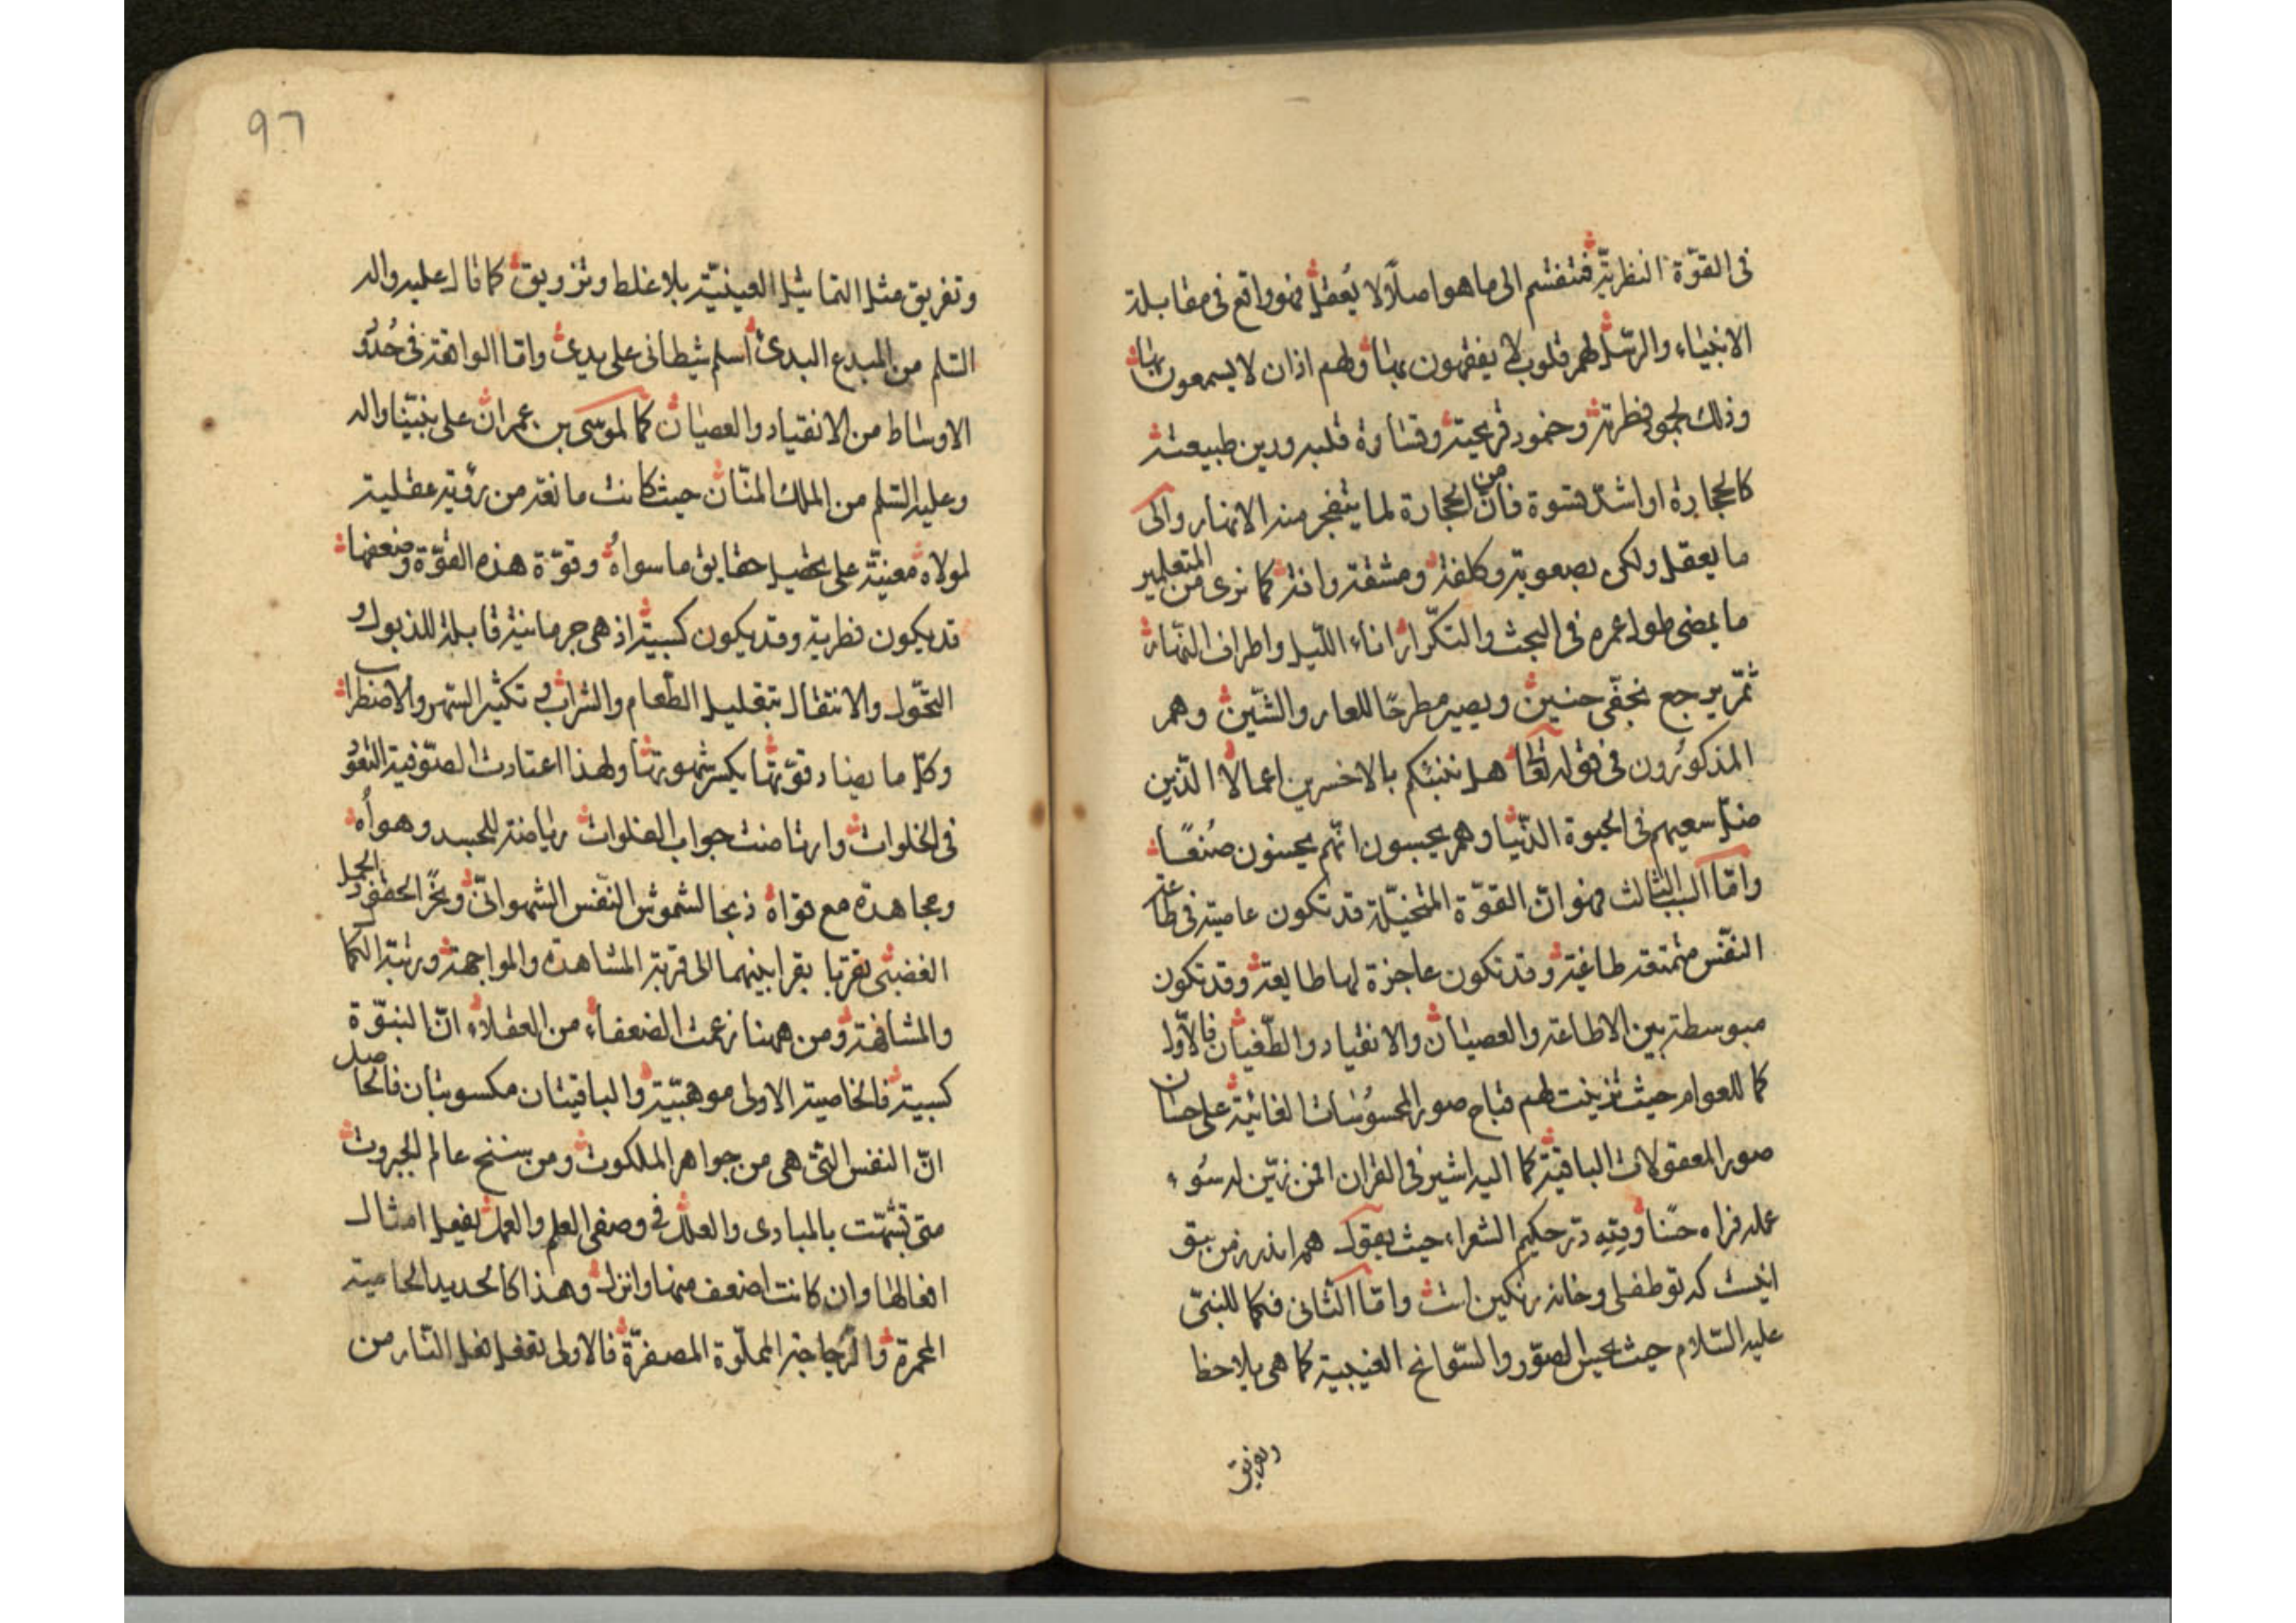 فى القوّة النظريّة فتنقسم الى ما هو اصلًا لا يُعقل فهو واقع فى مقابلة
الانبياء والرسل لهم قلوب لا يفقهون بها ولهم اذان لا يسمعون بها
وذلك لجمود فطرته وخمود قريحته وقساوة قلبه ورين طبيعته
كالحجارة او اشدّ قسوة فانّ من الحجارة لما يتفجر منه الانهار والى
ما يعقل ولكن بصعوبة وكلفة ومشقة وافة كما نرى من المتعلمين
ما يمضى طول عمره فى البحث والتكرار اناء اللّيل واطراف النّهار
ثمّ يرجع بخفّى حنين ويصير مطرحًا للعار والشّين وهم
المذكورُون فى قوله تعالى هل ننبئكم بالاخسرين اعمالًا الّذين
ضلّ سعيهم فى الحيوة الدّنيا وهم يحسبون انّهم يحسنون صُنعًا
وامّا السبب الثالث فهو انّ القوّة المتخيّلة قد تكون عاصية فى طاعة
النفس متمردة طاغية وقد تكون عاجزة لها طايعة وقد تكون
مبوسطة بين الاطاعة والعصيان والانقياد والطّغيان فالاوّل
كما للعوام حيث تزينت لهم قباح صور المحسوُسات الفانية على حسان
صور المعقولات الباقيّة كما اليه اشير فى القران افمن زيّن له سُوء
عمله فراه حسنًا وفيه درّ حكيم الشعراء حيث يقول همه اندرز من بتو
اينست كه تو طفلى وخانه رنگين است وامّا الثانى فكما للنبىّ
عليه السّلام حيث يحس الصوّر والسّوانح الغيبية كما هى بلا خطا
وتفريق
٩٦
وتفريق مثل التماثيل العينيّة بلا غلط وتزويق كما قال عليه واله
السّلم من المبدع البدئ اسلم شيطانى على يدىّ وامّا الواقعة فى حُدُو
الاوساط من الانقياد والعصيان كما لموسى بن عمران على نبيّنا واله
وعليه السّلم من الملك المنّان حيث كانت مانعة من رؤية عقلية
لمولاه مُعينة على تحصيل حقايق ما سواهُ وقوّة هذه القوّة وضعفها
قد يكون فطرية وقد يكون كسبية اذ هى جرمانية قابلة للذبول و
التحّول والانتقال بتقليل الطّعام والشراب و تكثير السّهر والاضطراب
وكلّ ما يضاد قوّتها يكسر شهوتها ولهذا اعتادت الصّوفية التقوّ
فى الخلوات وارتاضت جواب الفلوات رياضة للجسد وهواُه
ومجاهدة مع قواه ذبحا لشموس النّفس الشهوانىّ ونحرًا لحقود الجمل
الغضبىّ تقرّبا بقرابينهما الى قربة المشاهدة والمواجهة ورتبة المكا
والمشافهة ومن ههنا زعمت الضعفاء من العقلاء انّ النبوّة
كسبية فالخاصية الاولى موهبيّة والباقيتان مكسوبتان فالحاصل
انّ النفس التى هى من جواهر الملكوت ومن سنخ عالم الجبروت
متى تشبّهت بالمبادى والعلل فى وصفى العلم والعمل يفعل امثال
افعالها وان كانت اضعف منها وانزل وهذا كالحديد الحامية
المحمرة والزّجاجة المملوّة المصفرّة فالاولى تفعل فعل النّار من